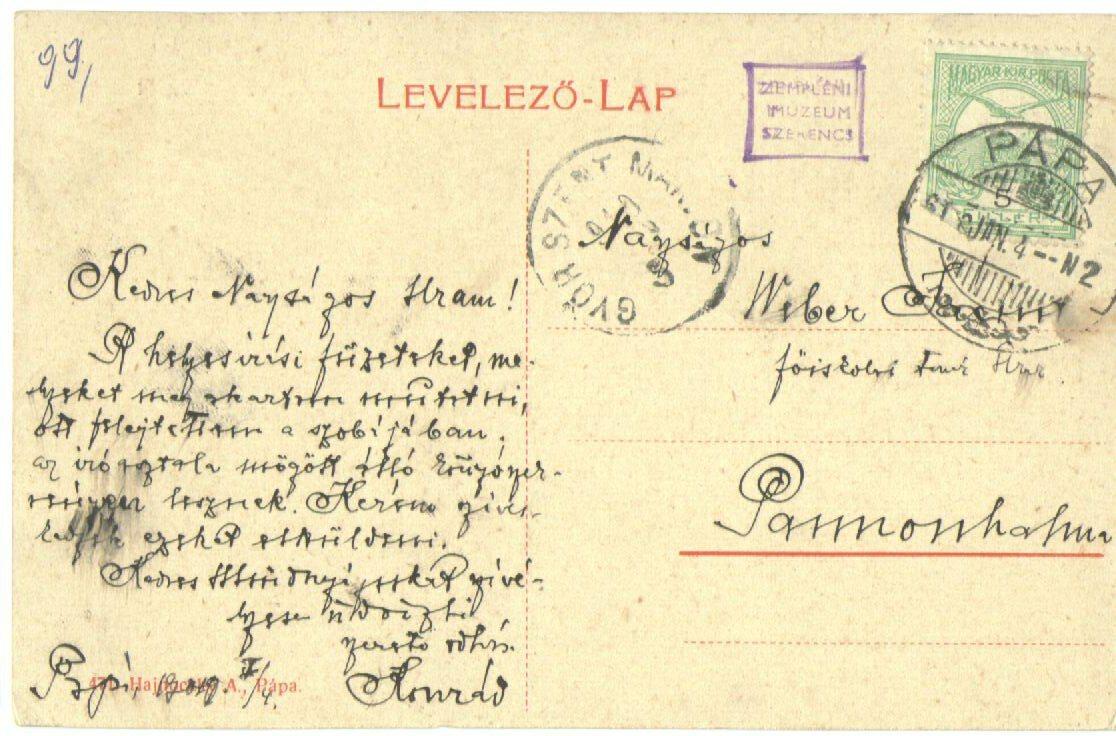 99,
LEVELEZŐ-LAP
ZEMPLÉNI
MUZEUM
SZERENCS
MAGYAR KIR. POSTA
PÁPA
5
JAN. 4 -- N2
GYŐR SZENT MÁR
Kedves Nagyságos Uram!
A helyesirási füzeteket, me-
lyeket meg akartam mutatni,
ott felejtettem a szobájában.
az iró asztala mögött álló
lesznek. Kérem szives-
kedjék ezeket elküldeni.
Kedves mindnyájukat szivé-
lyesen üdvözli
szerető
Konrád
Pápa, 1909
A., Pápa.
Nagyságos
Weber
főiskolai tanár Úr
Pannonhalma